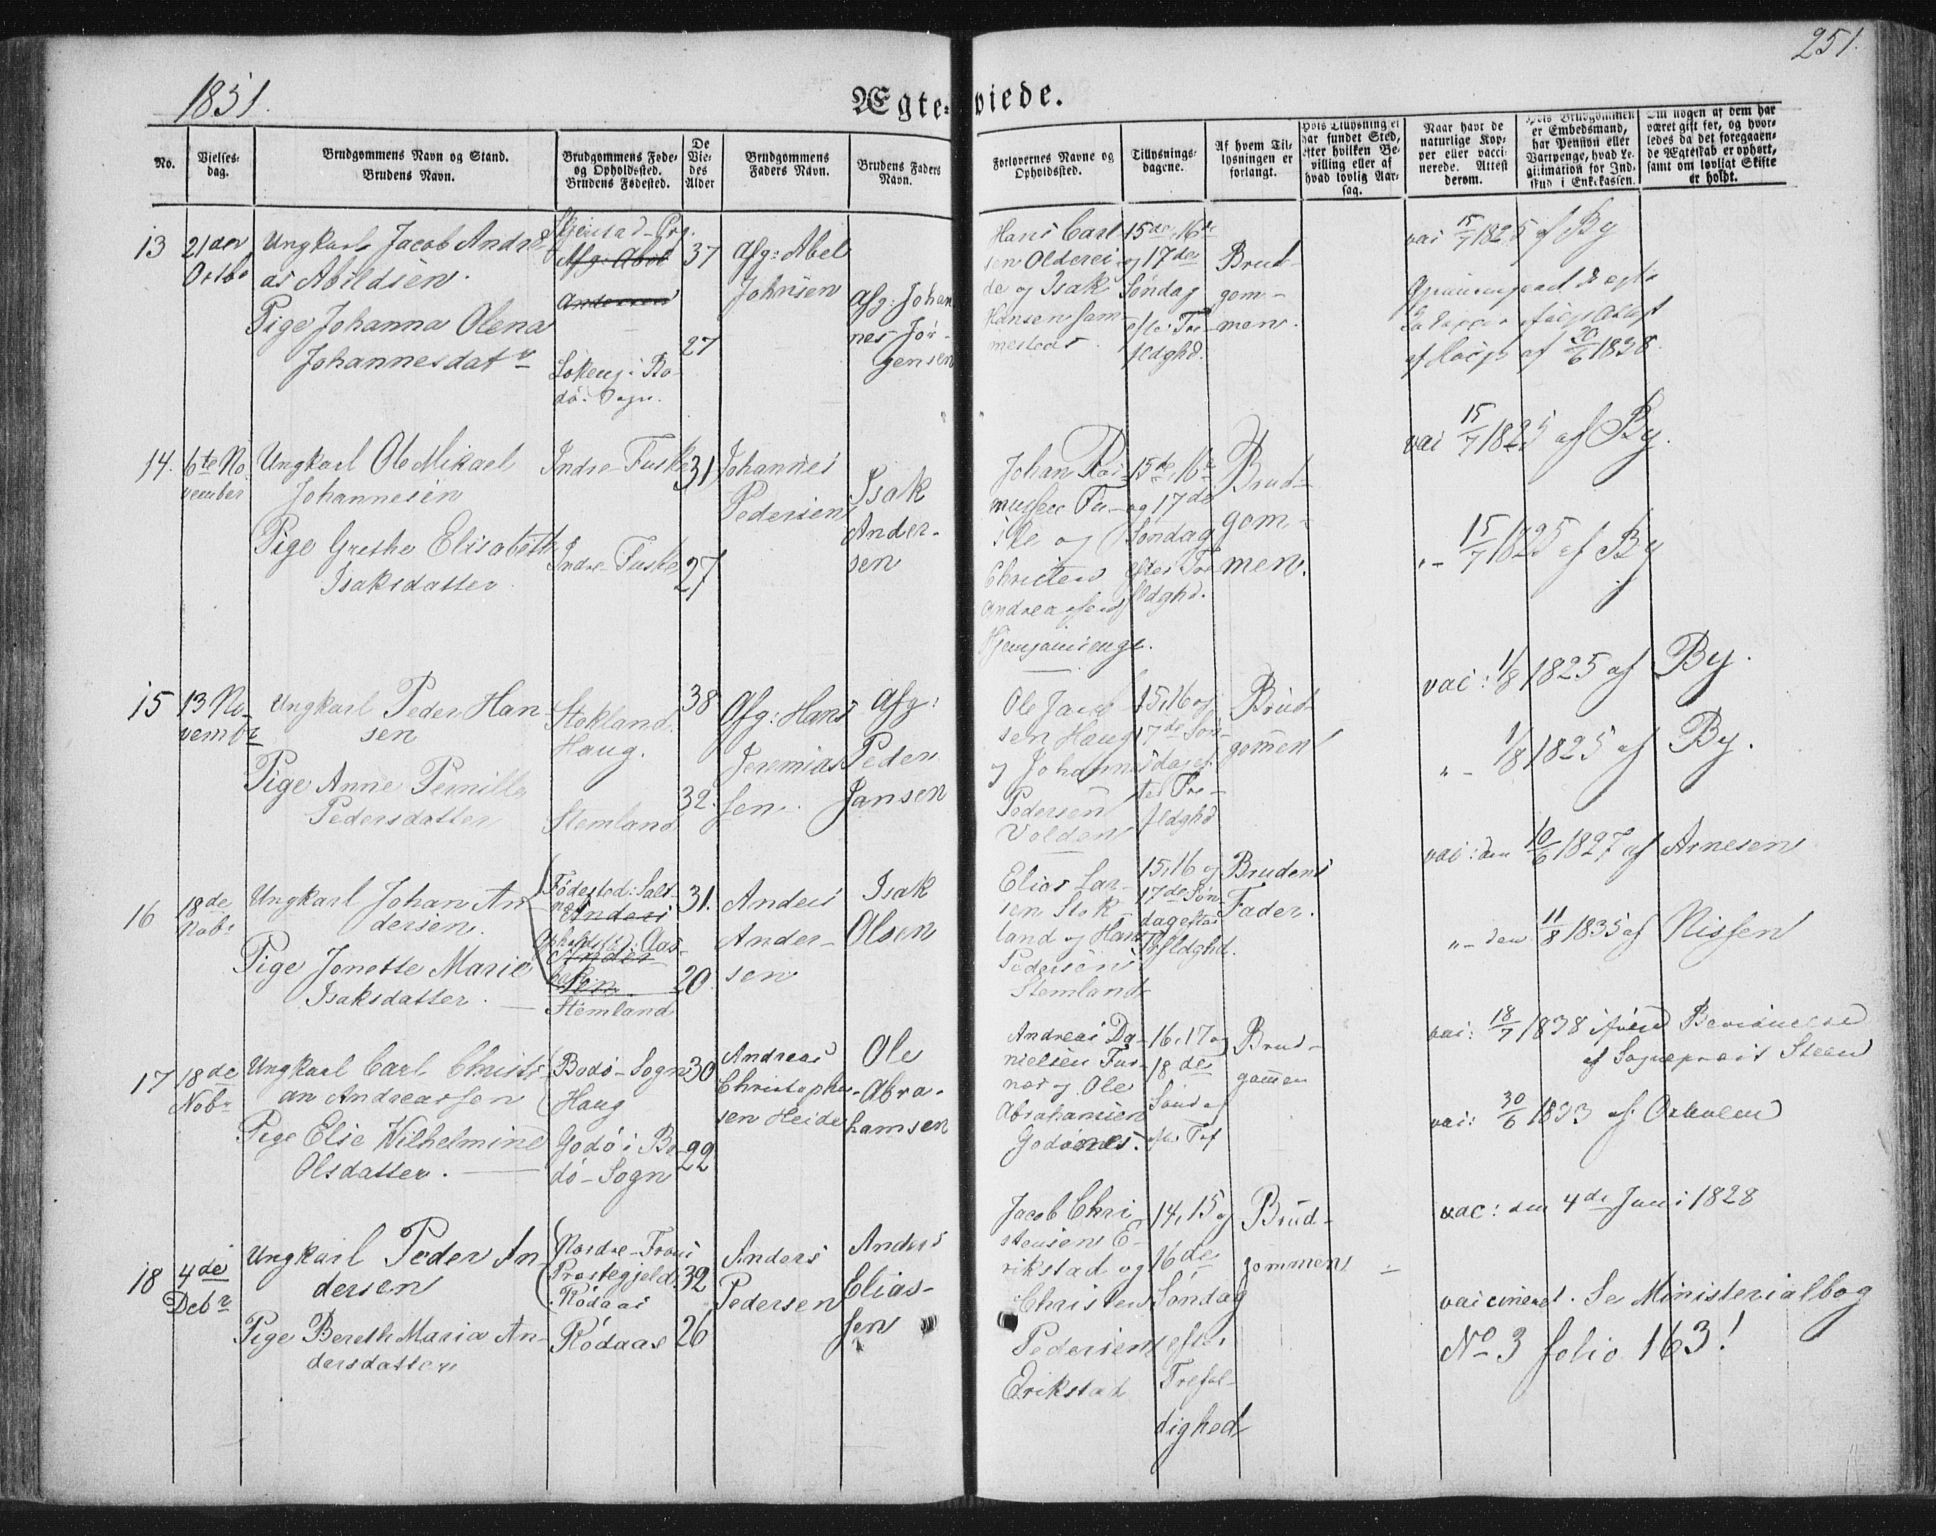 1851.
251.
Ægte-viede.
No.
Vielses-
dag.
Brudgommens Navn og Stand.
Brudens Navn.
Brudgommens Føde-
og Opholdssted.
Brudens Fødested.
De
Vie-
des
Alder
Brudgommens
Faders Navn.
Brudens Faders
Navn.
Forlovernes Navne og
Opholdssted.
Tillysnings-
dagene.
Af hvem Til-
lysningen er
forlangt.
Hvis Tillysning ei
har fundet Sted,
efter hvilken Be-
villing eller af
hvad lovlig Aar-
sag.
Naar havt de
naturlige Kop-
per eller vacci-
nerede. Attest
derom.
Hvis Brudgommen
er Embedsmand,
har Pension eller
Vartpenge, hvad Le-
gitimation for Ind-
skud i Enkekassen.
Om nogen af dem har
været gift før, og hvor-
ledes da det foregaaen-
de Ægteskab er ophørt,
samt om lovligt Skifte
er holdt.
13
21de
Octbr
Ungkarl Jacob Andre
as Abildsen.
Pige Johanna Olena
Johannesdatr
Skjerstad-Prg.
Afg: Abel
Andersen
Bo-
dø-Sogn.
37
27
Afg: Abel
Johnsen
Afg: Johan
nes Jør-
gensen
Hans Carl
sen Olderei-
de og Isak
Hansen
15de, 16de
og 17de
Søndag
efter Tre-
fldghd.
Brud-
gom-
men.
vac 15/7 1825 af By
af 30/6 1838.
14.
6te No
vember
Ungkarl Ole Mikael
Johannesen
Pige Grethe Elisabeth
Isaksdatter
Indre-Fuske
Indre-Fuske
31
27
Johannes
Pedersen
Isak
Ander-
sen
Johan Ras-
mussen Fu-
ske og
Christen
Andreassen
15de, 16de
og 17de
Søndag
efter Tre
fldghd.
Brud-
gom-
men.
vac 15/7 1825 af By.
"- 15/7 1825 af By
15
13 No-
vembr
Ungkarl Peder Han
sen
Pige Anne Pernille
Pedersdatter
Stokland
Haug.
Stemland
38
32.
Afg: Hans
Jeremias
sen.
Afg:
Peder
Jansen
Ole Jacob
sen Haug
og Johannes
Pedersen
Volden
15, 16 og
17de Søn-
dag ef-
ter Tre-
fldghd
Brud
gommen
vac: 1/8 1825 af By.
"- 1/8 1825 af By.
16
18de
Nobr
Ungkarl Johan An
dersen.
Pige Jonette Marie
Isaksdatter.
Fødested: Salt-
Anders
Opholdsstd: Aas-
Ander
sen.
Stemland
31.
20.
Anders
Ander-
sen
Isak
Olsen
Elias Lar-
sen Stok
land og Hans
Pedersen
Stemland
15, 16 og
17de Søn
dag efter
Trfldghd.
Brudens
Fader.
vac: den 10/6 1827 af Arnesen
"- den 11/8 1835 af Nissen
17
18de
Nobr
Ungkarl Carl Christi
an Andreassen
Pige Elie Wilhelmine
Olsdatter.
Bodø-Sogn
Haug
Godø i Bo-
dø-Sogn
30
22
Andreas
Christopher-
sen Heide
Ole
Abra-
hamsen
Andreas Da-
nielsen Fus-
nes og Ole
Abrahamsen
Godønes.
16, 17 og
18de
Søndag
eft. Tref
Brud-
gommen
vac: 18/7 1838 ifølge
af Sogneprest Steen
vac: 30/6 1833 af
18
4de
Decbr
Ungkarl Peder An
dersen
Pige Bereth Maria An-
dersdatter
Nordre-Frøns
Præstegjeld
Rødaas
Rødaas
32
26
Anders
Pedersen
Anders
Elias-
sen
Jacob Chri
stensen E-
rikstad og
Christen
Pedersen
Erikstad
14, 15 og
16de
Søndag
efter
Trefol-
dighed
Brud-
gommen
vac: den 4de Juni 1828
vaccineret. Se Ministerialbog
No 3 folio 163!